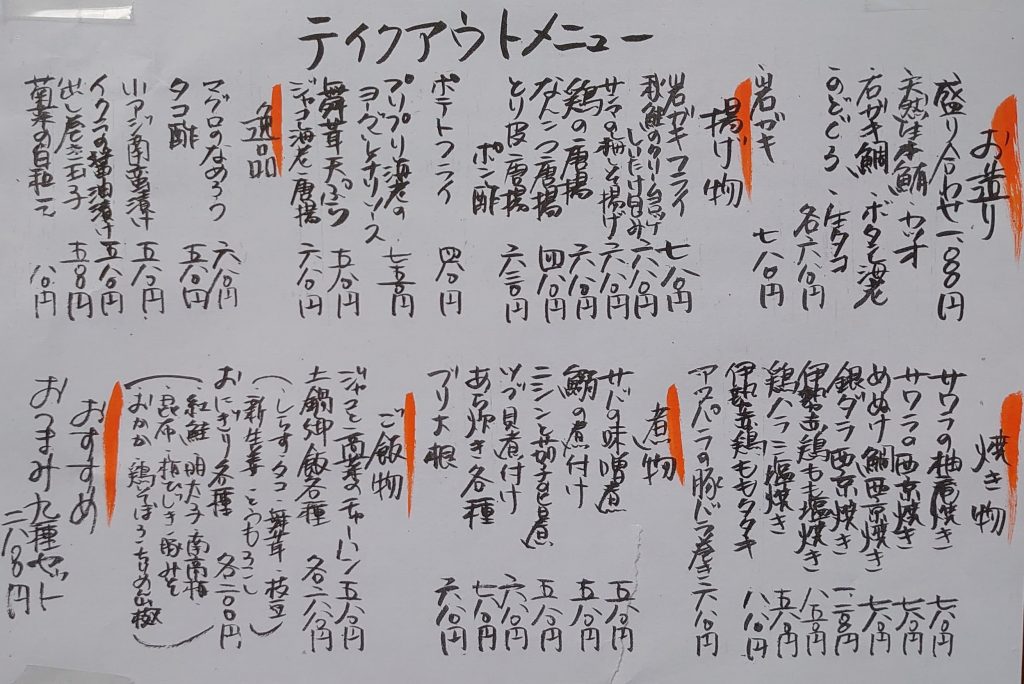 テイクアウトメニュー
お造り
盛り合わせ 一、八〇〇円
天然生本鮪 カツオ
石ガキ鯛 ボタン海老
のどぐろ 生タコ
各六八〇円
岩ガキ 七八〇円
揚げ物
岩ガキフライ 七八〇円
秋鮭のクリームコロッケ
しいたけ包み 六八〇円
サワラの梅しそ揚げ 六八〇円
鶏の唐揚 六八〇円
なんこつ唐揚 四八〇円
とり皮唐揚
ポン酢 六三〇円
ポテトフライ 四八〇円
プリプリ海老の
ヨーグルトチリソース 七五〇円
舞茸天ぷら 五八〇円
ジャコ海老唐揚 六八〇円
逸品
マグロのなめろう 六八〇円
タコ酢 五八〇円
小アジ南蛮漬 五八〇円
イクラの醤油漬け 五八〇円
出し巻き玉子 五八〇円
菊菜の白和え 八八〇円
焼き物
サワラの柚庵焼き 七八〇円
サワラの西京焼き 七八〇円
めぬけ鯛西京焼き 七八〇円
銀ダラ西京焼き 一、二八〇円
伊勢赤鶏もも塩焼き 八五〇円
鶏ハラミ塩焼き 五八〇円
伊勢赤鶏ももタタキ 八八〇円
アスパラの豚バラ巻き 六八〇円
煮物
サバの味噌煮 五八〇円
鰯の煮付け 五八〇円
ニシンと茄子旨煮 五八〇円
ツブ貝煮付け 六八〇円
あら炊き各種 七八〇円
ブリ大根 六八〇円
ご飯物
ジャコと高菜のチャーハン 五八〇円
土鍋御飯各種 各二、六八〇円
（しらすタコ 舞茸 枝豆
新生姜 とうもろこし）
おにぎり各種 各二〇〇円
（紅鮭 明太子 南高梅
昆布 梅ひじき 豚みそ
おかか 鶏そぼろ ちりめん山椒）
おすすめ
おつまみ九種セット
二、六八〇円